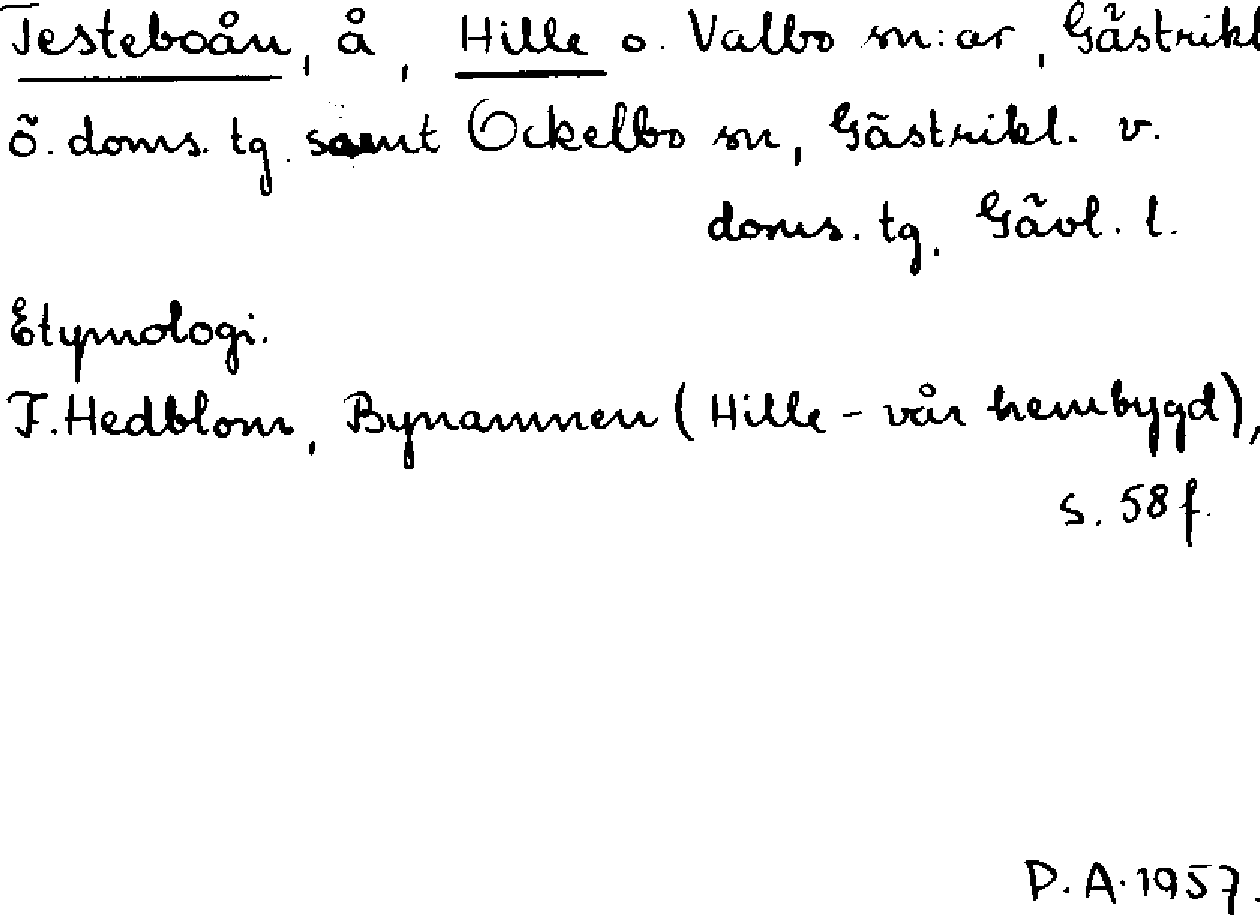 Testeboån, å, Hille o. Valbo sn:ar, Gästrikl
ö. doms. tg. samt Ockelbo sn, Gästrikl. v.
doms. tg. Gävl. l.
Etymologi.
F. Hedblom, Bynamnen (Hille - vår hembygd),
s. 58 f.
P. A. 1957.